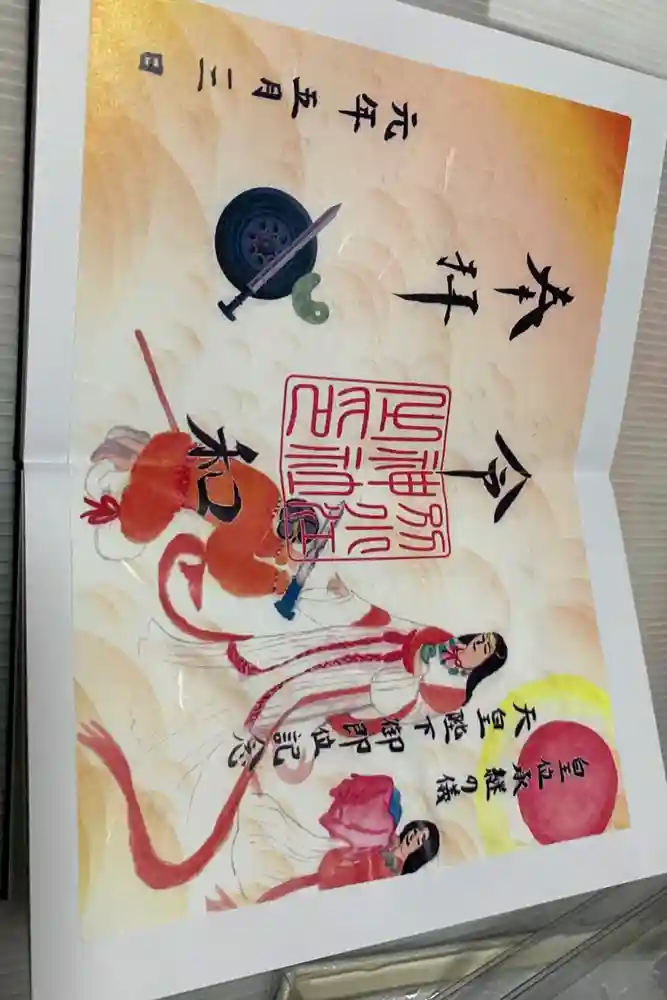 皇位承継の儀
天皇陛下御即位記念
令和
別小江
神社
之印
奉拝
元年五月三日